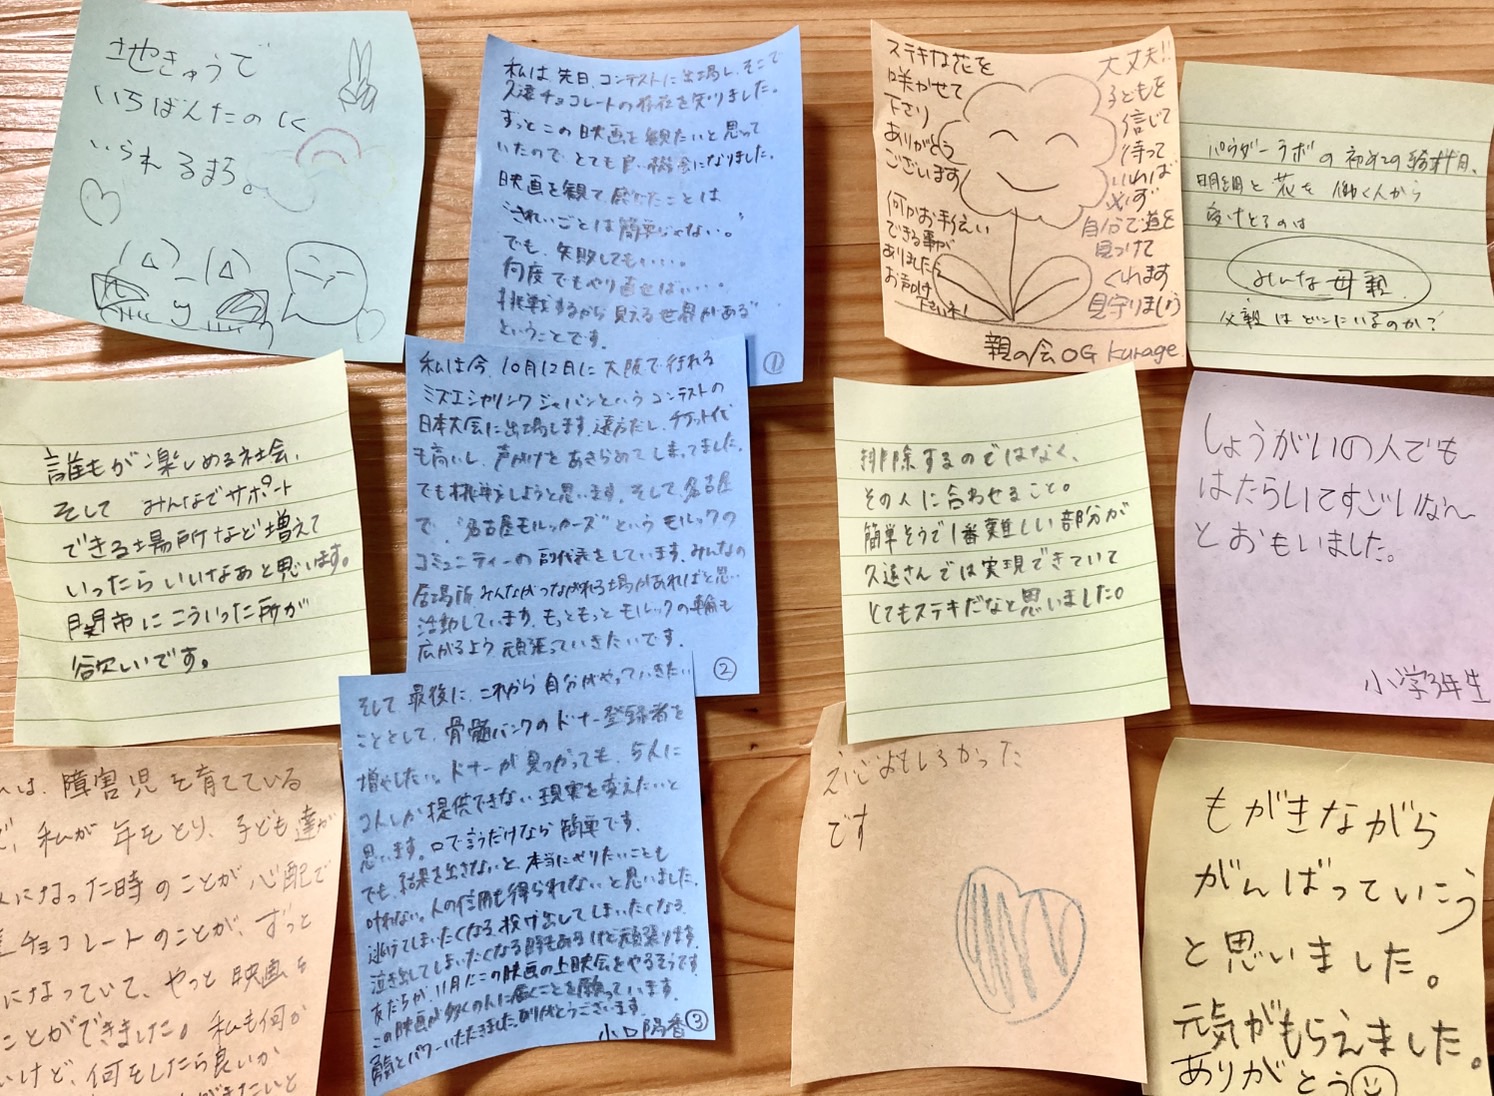 地きゅうで
いちばんたのしく
いられるまち。
私は先日、コンテストに出場し、そこで
久遠チョコレートの存在を知りました。
ずっとこの映画を観たいと思って
いたので、とても良い機会になりました。
映画を観て感じたことは
"きれいごとは簡単じゃない。"
でも、失敗してもいい。
何度でもやり直せばいい。
"挑戦するから見える世界がある"
ということです。
①
私は今、10月12日に大阪で行われる
ミズエシャリンクジャパンというコンテストの
日本大会に出場します。遠方だし、チケット代
も高いし、声かけをあきらめてしまってました。
でも挑戦しようと思います。そして、名古屋
で、"名古屋モルッカーズ"というモルックの
コミュニティーの副代表をしています。みんなの
居場所、みんながつながれる場があればと思い
活動しています。もっともっとモルックの輪も
広がるよう頑張っていきたいです。
②
そして最後に、これから自分がやっていきたい
こととして、骨髄バンクのドナー登録者を
増やしたい。ドナーが見つかっても、5人に
2人しか提供できない現実を変えたいと
思います。口で言うだけなら簡単です。
でも、結果を出さないと、本当にやりたいことも
叶わない。人の信用も得られないと思いました。
逃げてしまいたくなる、投げ出してしまいたくなる、
泣き出してしまいたくなる時もあるけど頑張ります。
友だちが11月にこの映画の上映会をやるそうです。
この映画が多くの人に届くことを願っています。
勇気とパワーいただきました。ありがとうございます。
小口陽香③
ステキな花を
咲かせて
下さり
ありがとう
ございます
何かお手伝い
できる事が
ありましたら
お声かけ
下さいネ!
大丈夫!!
子どもを
信じて
待って
いれば
必ず
自分で道を
見つけて
くれます
見守りましょう
親の会OG Kurage
パウダーラボの初めての給料日、
明細と花を働く人から
受けとるのは
みんな母親
父親はどこにいるのか?
誰もが楽しめる社会、
そして みんなでサポート
できる場所など増えて
いったらいいなぁと思います。
関市にこういった所が
欲しいです。
排除するのではなく、
その人に合わせること。
簡単そうで1番難しい部分が
久遠さんでは実現できていて
とてもステキだなと思いました。
しょうがいの人でも
はたらいてすごいなぁ〜
とおもいました。
小学3年生
は、障害児を育てている
、私が年をとり、子ども達が
になった時のことが心配で
チョコレートのことが、ずっと
になっていて、やっと映画を
ことができました。私も何か
いけど、何をしたら良いか
えいがおもしろかった
です
もがきながら
がんばっていこう
と思いました。
元気がもらえました。
ありがとう